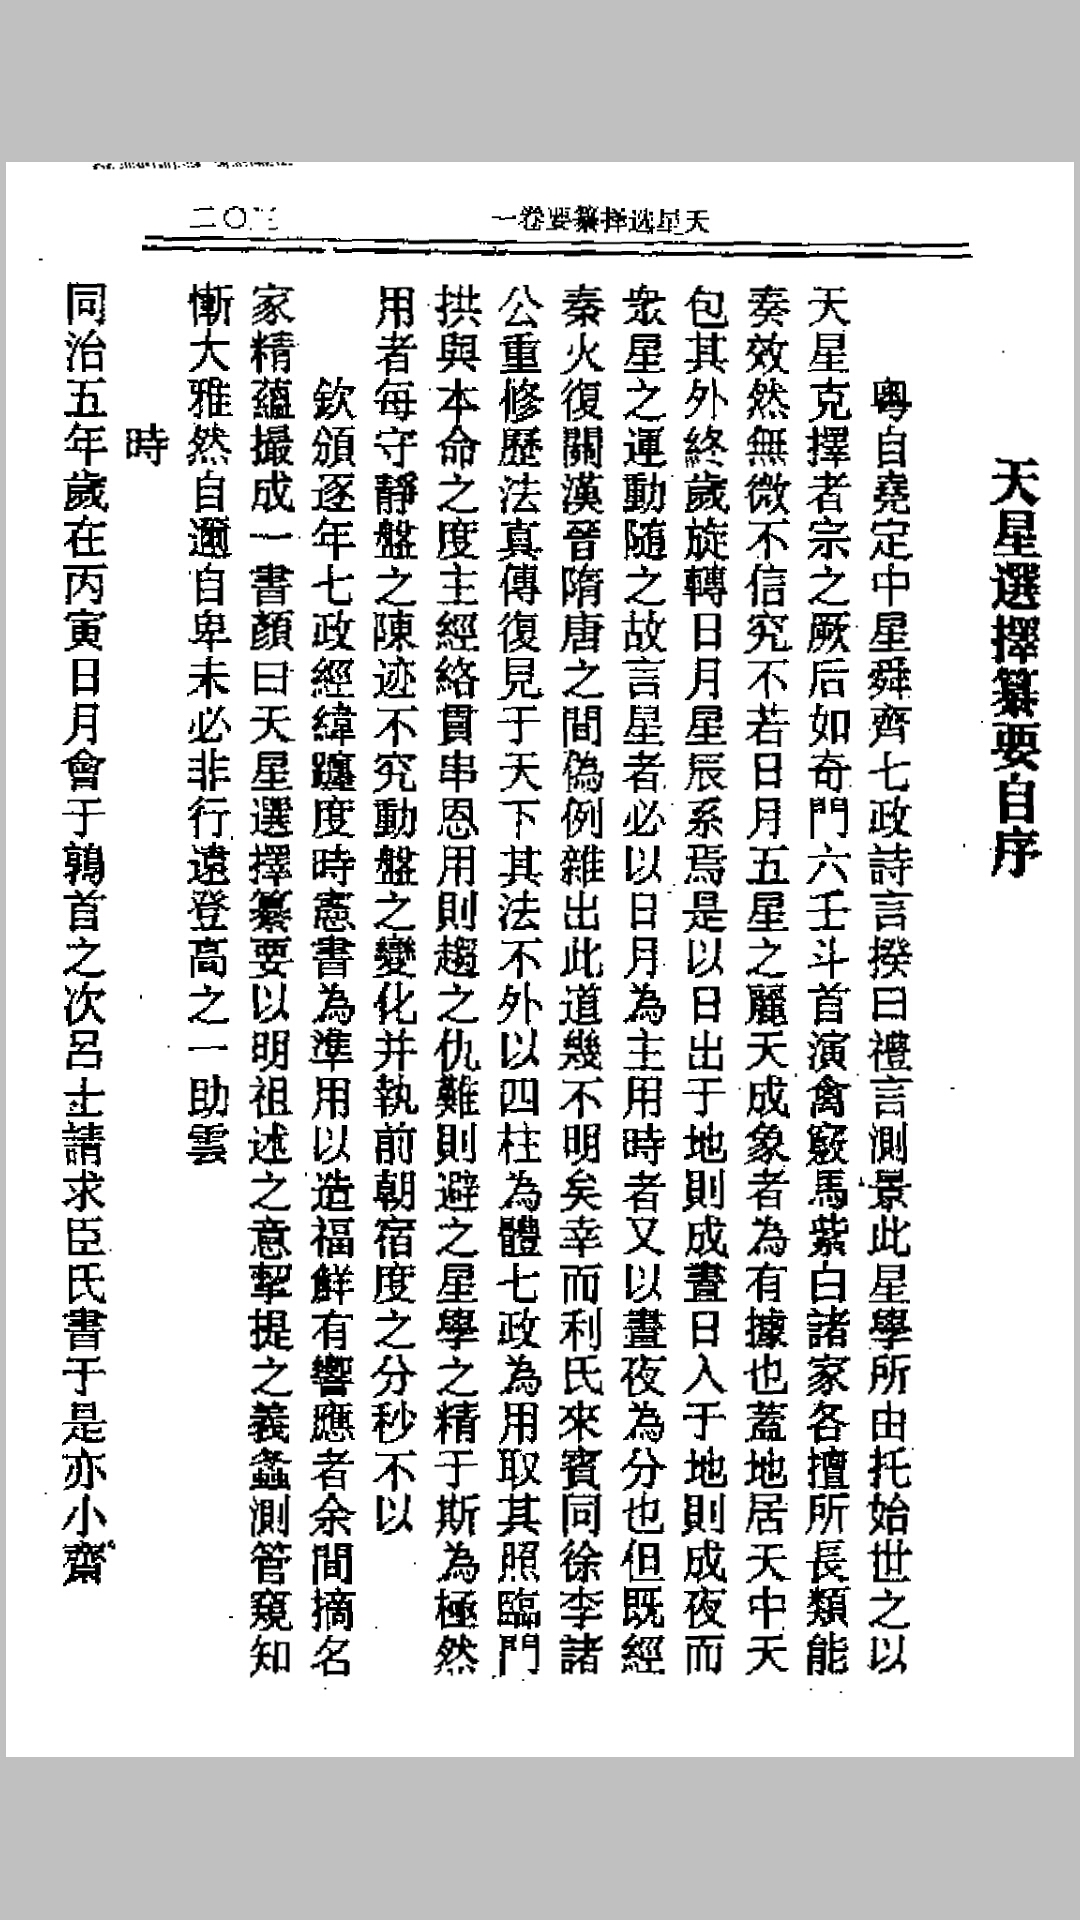 天星选择纂要卷一
天星選擇纂要自序
粵自堯定中星舜齊七政詩言揆曰禮言測景此星學所由托始世之以
天星克擇者宗之厥后如奇門六壬斗首演禽竅馬紫白諸家各擅所長類能
奏效然無微不信究不若日月五星之麗天成象者為有據也蓋地居天中天
包其外終歲旋轉日月星辰系焉是以日出于地則成晝日入于地則成夜而
衆星之運動隨之故言星者必以日月為主用時者又以晝夜為分也但既經
秦火復關漢晉隋唐之間偽例雜出此道幾不明矣幸而利氏來賓同徐李諸
公重修歷法真傳復見于天下其法不外以四柱為體七政為用取其照臨門
拱與本命之度主經絡貫串恩用則趨之仇難則避之星學之精于斯為極然
用者每守靜盤之陳迹不究動盤之變化并執前朝宿度之分秒不以
欽頒逐年七政經緯躔度時憲書為準用以造福鮮有響應者余間摘名
家精蘊撮成一書顏曰天星選擇纂要以明祖述之意挈提之義蠡測管窺知
慚大雅然自邇自卑未必非行遠登高之一助雲
時
同治五年歲在丙寅日月會于鶉首之次呂士請求臣氏書于是亦小齋